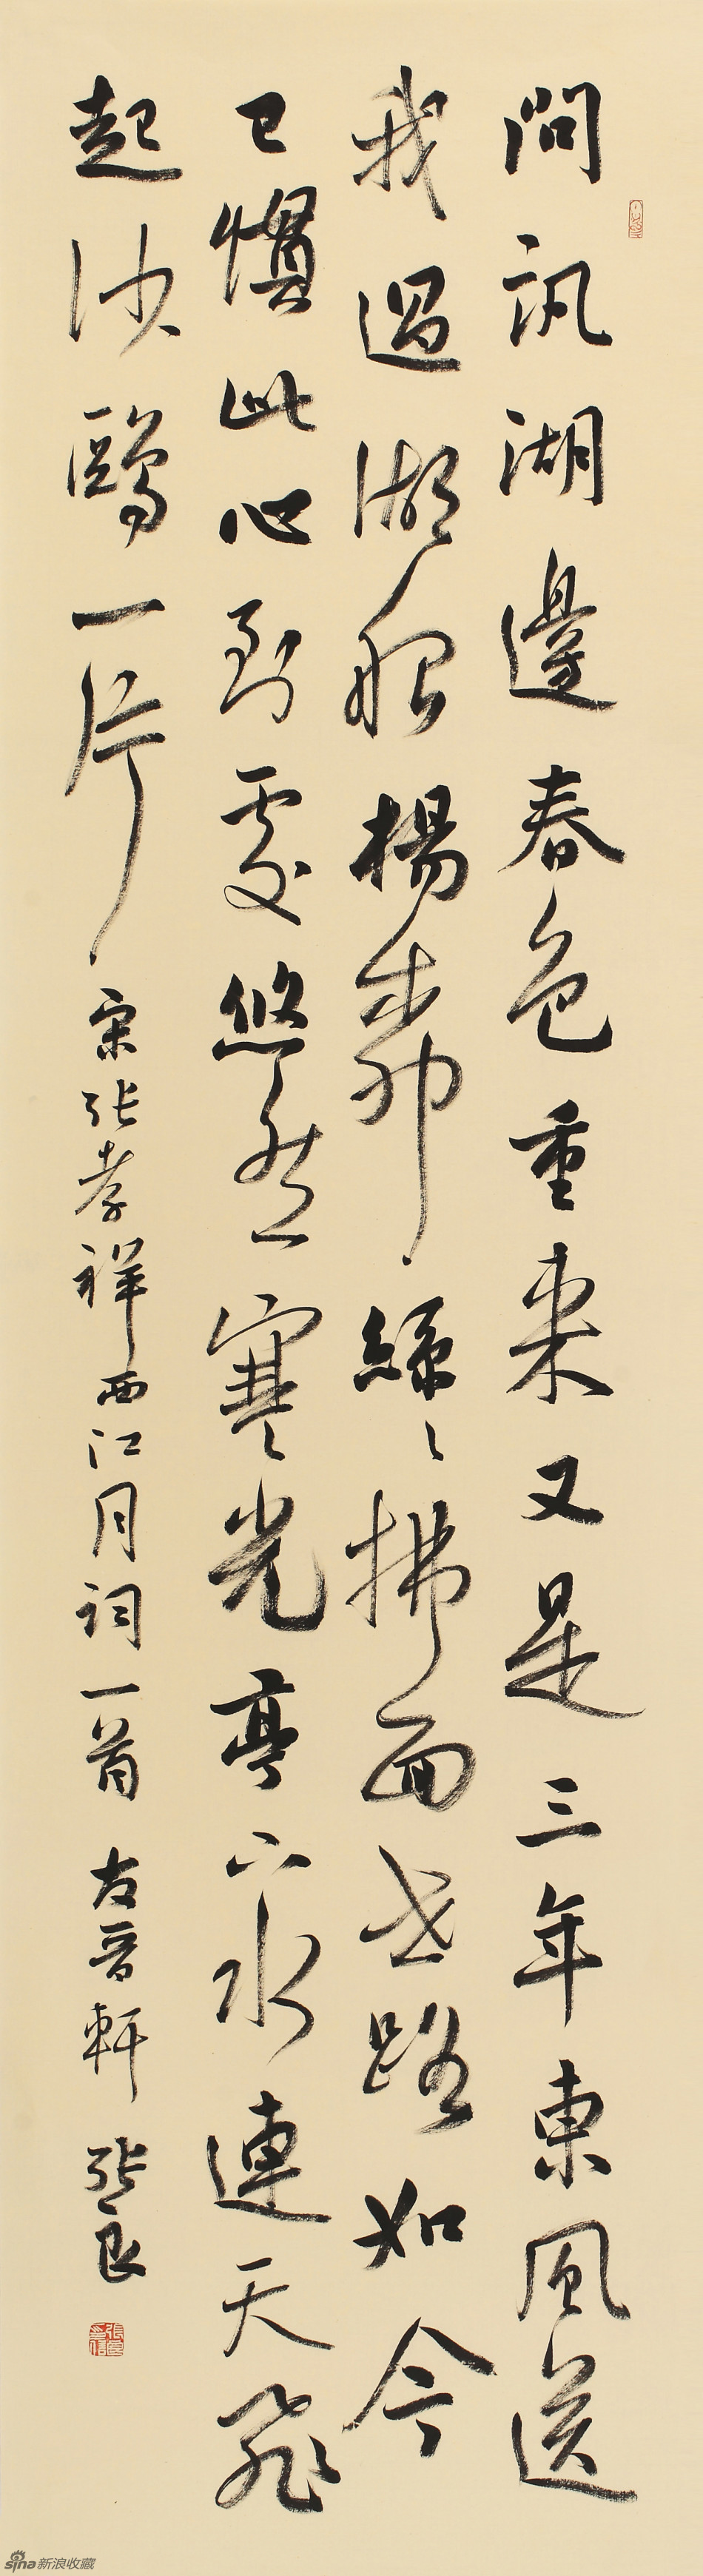 問訊湖邊春色重来又是三年東風送
我過湖船楊柳絲〻拂面世路如今
已慣此心到處悠然寒光亭下水連天飛
起沙鷗一片 宋張孝祥西江月詞一首 友晋軒 張良
sina新浪收藏